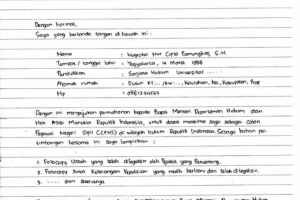 Dengan hormat,
Saya yang bertanda tangan di bawah ini :
Nama : Nugroho Cipto Pamungkas, S.H
Tempat / tanggal lahir : Yogyakarta, 14 Maret 1988
Pendidikan : Sarjana Hukum Universitas ......
Alamat rumah : Dusun Kelurahan, Kec, Kabupaten, Prop
Hp :
Dengan ini mengajukan permohonan kepada Bapak Menteri Departemen Hukum dan
Hak Asasi Manusia Republik Indonesia, untuk dapat menerima saya sebagai Calon
Pegawai Negeri Sipil (CPNS) di wilayah hukum Republik Indonesia. Sebagai bahan per-
timbangan bersama ini saya lampirkan :
1. Fotocopy Ijazah yang telah dilegalisir oleh Pejabat yang Berwenang.
2. Fotocopy Surat Keterangan Kepolisian yang masih berlaku dan telah dilegalisir.
3. ..... dan seterusnya.